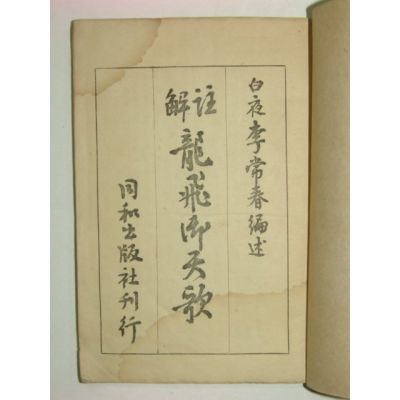 白夜李常春編述
註解
龍飛御天歌
同和出版社刊行